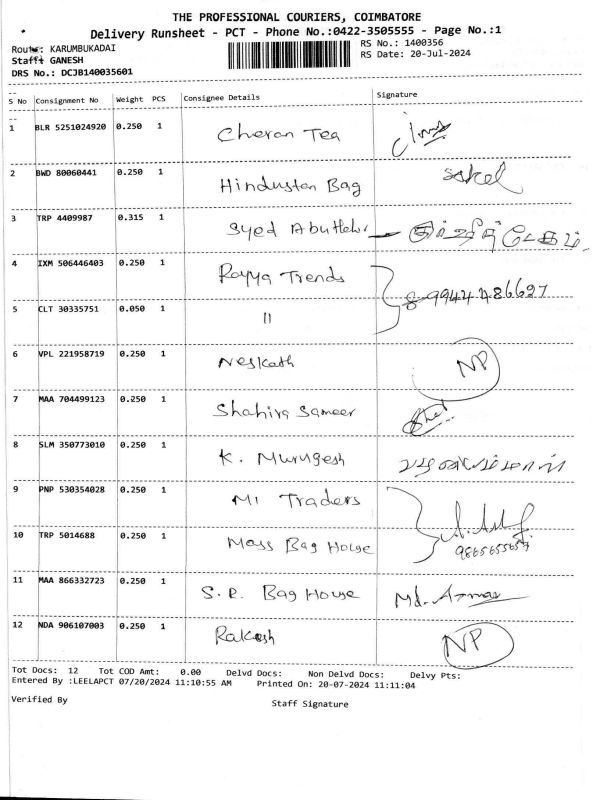 THE PROFESSIONAL COURIERS, COIMBATORE
Delivery Runsheet - PCT - Phone No.:0422-3505555 - Page No.:1
Route: KARUMBUKADAI
RS No.: 1400356
Staff: GANESH
RS Date: 20-Jul-2024
DRS No.: DCJB140035601
S No Consignment No Weight PCS Consignee Details Signature
1 BLR 5251024920 0.250 1 Cheran Tea
2 BWD 80060441 0.250 1 Hindustan Bag
3 TRP 4409987 0.315 1 Syed
4 IXM 506446403 0.250 1 Rayya Trends
5 CLT 30335751 0.050 1 11
6 VPL 221958719 0.250 1 Neskath NP
7 MAA 704499123 0.250 1 Shahira Sameer
8 SLM 350773010 0.250 1 K. Murugesh
9 PNP 530354028 0.250 1 M1 Traders
10 TRP 5014688 0.250 1 Mass Bag House
11 MAA 866332723 0.250 1 S.R. Bag House Md.
12 NDA 906107003 0.250 1 Rakesh NP
Tot Docs: 12 Tot COD Amt: 0.00 Delvd Docs: Non Delvd Docs: Delvy Pts:
Entered By :LEELAPCT 07/20/2024 11:10:55 AM Printed On: 20-07-2024 11:11:04
Verified By
Staff Signature